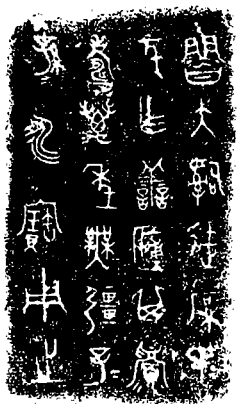 魯大𤔲徒厚氏
元乍譱簠其眉
壽萬年無疆子
孫永寶用之